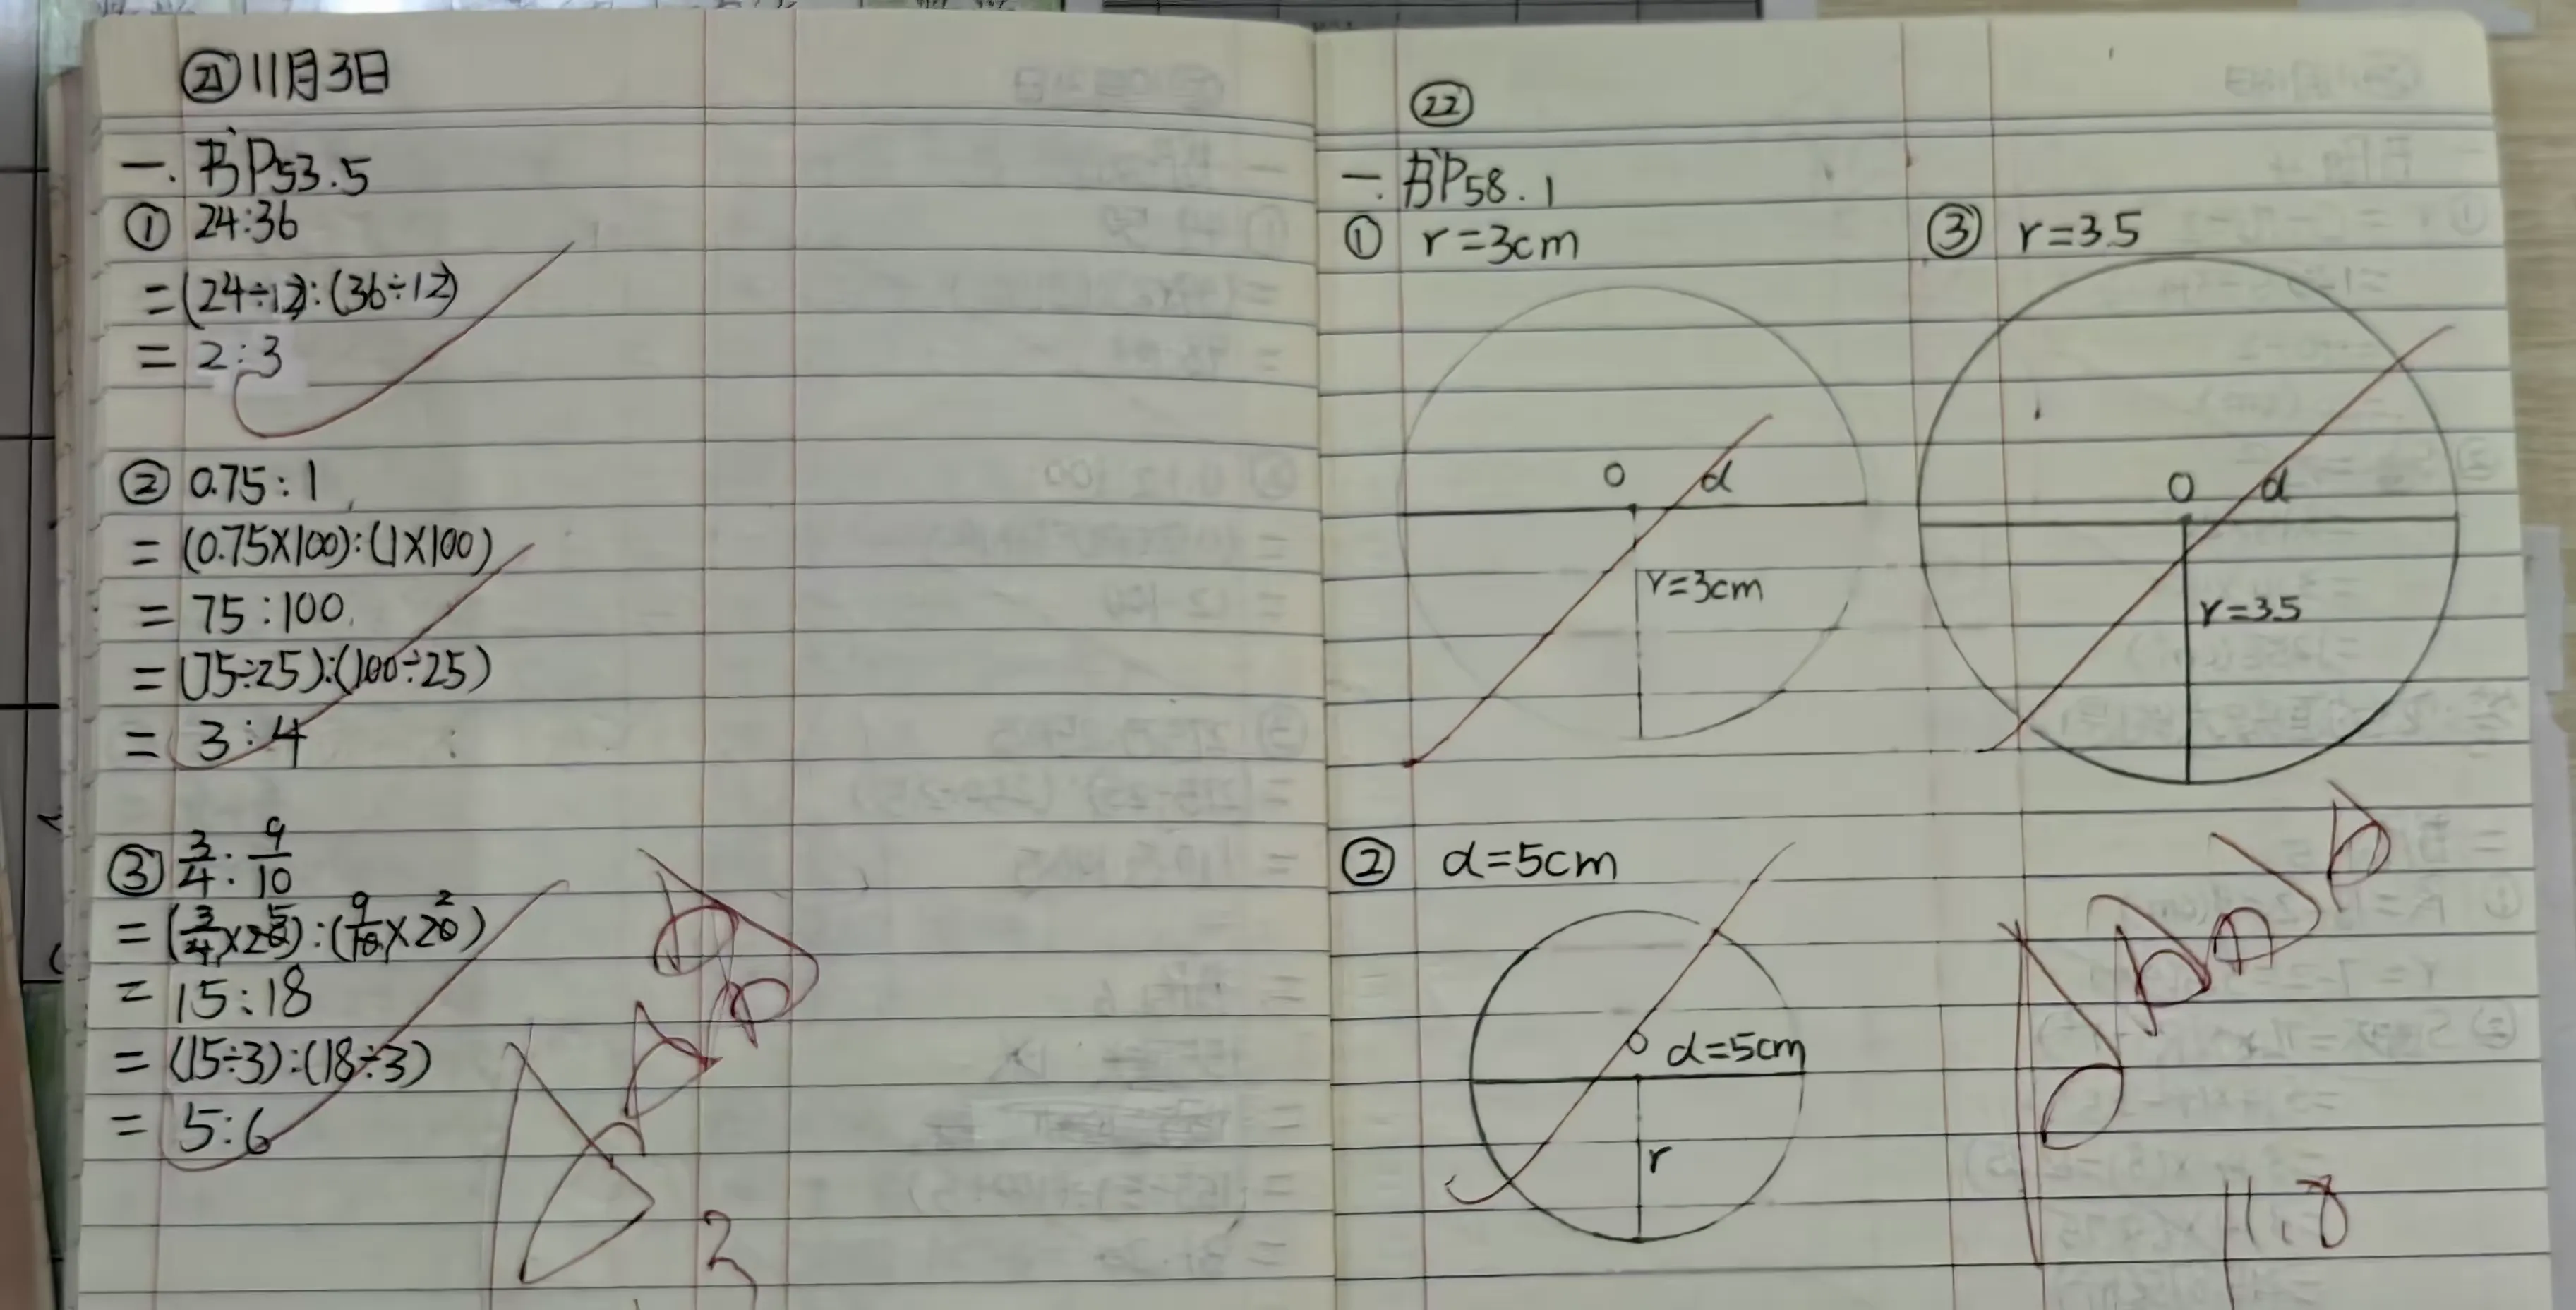 ㉑11月3日
一.书P53.5
① 24:36
=(24÷12):(36÷12)
= 2:3
② 0.75:1
= (0.75×100):(1×100)
= 75:100
= (75÷25):(100÷25)
= 3:4
③ 3/4 : 9/10
= (3/4×20 5):(9/10×20 2)
= 15:18
= (15÷3):(18÷3)
= 5:6
㉒
一.书P58.1
① r=3cm
O d
r=3cm
③ r=3.5
O d
r=3.5
② d=5cm
O d=5cm
r
11.8